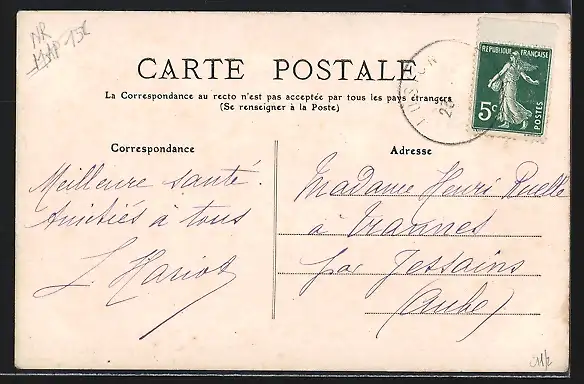 NR
15€
CARTE POSTALE
La Correspondance au recto n'est pas acceptée par tous les pays étrangers
(Se renseigner à la Poste)
REPUBLIQUE FRANÇAISE
5c
POSTES
Correspondance
Adresse
Meilleure santé.
Amitiés à tous
L. Hariot
Madame Henri Ruelle
à Trannes
par Jessains
(Aube)